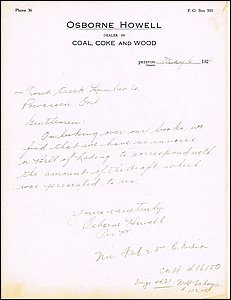 Phone 36
P. O. Box 585
OSBORNE HOWELL
DEALER IN
COAL, COKE AND WOOD
PRESTON May 6 192
Trout Creek Lumber Co.
Powassan Ont.
Gentlemen:
On looking over our books, we
find that we have no invoice
or Bill of Lading to correspond with
the amount of the draft which
was presented to us.
Yours very truly
Osborne Howell
Feb 25